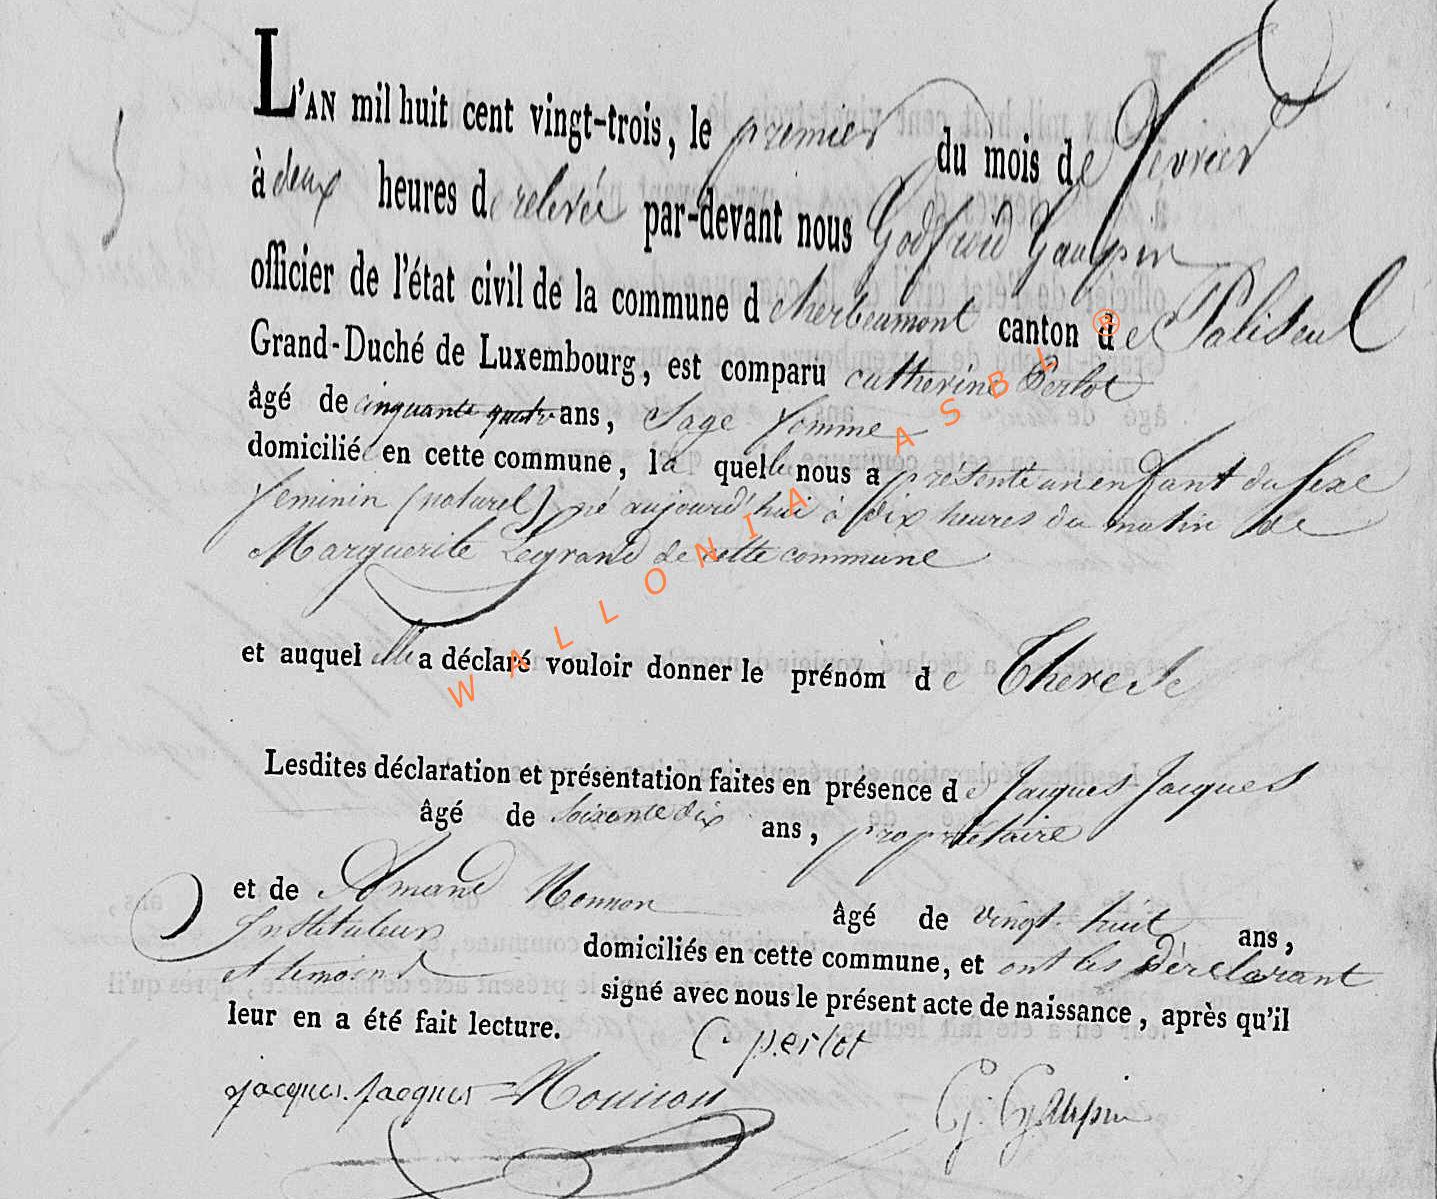 L'AN mil huit cent vingt-trois, le premier du mois de fevrier
à deux heures de relevée par-devant nous Godfroid Gaupin
officier de l'état civil de la commune d'herbeumont canton de Paliseul
Grand-Duché de Luxembourg, est comparu catherine Perlot
âgé de cinquante quatre ans, Sage femme
domicilié en cette commune, la quelle nous a présenté un enfant du sexe
feminin (naturel) né aujourd'hui à dix heures du matin de
Marguerite Legrand de cette commune
et auquel elle a déclaré vouloir donner le prénom de Therese
Lesdites déclaration et présentation faites en présence de Jacques Jacques
âgé de soixante dix ans, propriétaire
et de Amand Nonnon âgé de vingt huit ans,
Instituteur domiciliés en cette commune, et ont les déclarant
et temoins signé avec nous le présent acte de naissance, après qu'il
leur en a été fait lecture.
C. perlot
jacques. jacques Nonnon G. Gaupin
WALLONIA ASBL ®